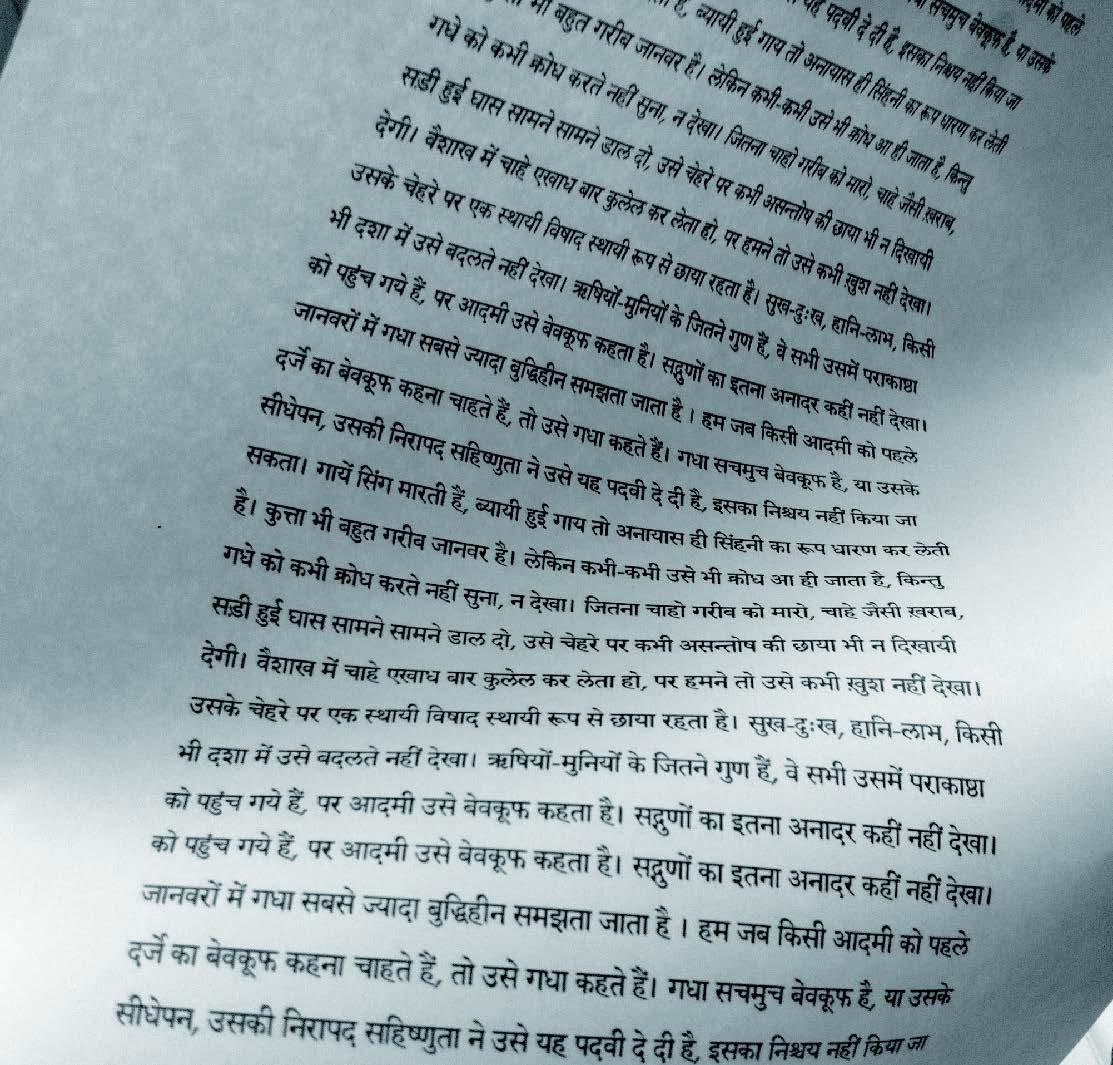 आदमी को पहले
सचमुच बेवकूफ है, या उसके
यह पदवी दे दी है, इसका निश्चय नहीं किया जा
है, ब्यायी हुई गाय तो अनायास ही सिंहनी का रूप धारण कर लेती
भी बहुत गरीब जानवर है। लेकिन कभी-कभी उसे भी क्रोध आ ही जाता है, किन्तु
गधे को कभी क्रोध करते नहीं सुना, न देखा। जितना चाहो गरीब को मारो, चाहे जैसी ख़राब,
सड़ी हुई घास सामने सामने डाल दो, उसे चेहरे पर कभी असन्तोष की छाया भी न दिखायी
देगी। वैशाख में चाहे एखाध बार कुलेल कर लेता हो, पर हमने तो उसे कभी ख़ुश नहीं देखा।
उसके चेहरे पर एक स्थायी विषाद स्थायी रूप से छाया रहता है। सुख-दुःख, हानि-लाभ, किसी
भी दशा में उसे बदलते नहीं देखा। ऋषियों-मुनियों के जितने गुण हैं, वे सभी उसमें पराकाष्ठा
को पहुंच गये हैं, पर आदमी उसे बेवकूफ कहता है। सद्गुणों का इतना अनादर कहीं नहीं देखा।
जानवरों में गधा सबसे ज्यादा बुद्धिहीन समझता जाता है । हम जब किसी आदमी को पहले
दर्जे का बेवकूफ कहना चाहते हैं, तो उसे गधा कहते हैं। गधा सचमुच बेवकूफ है, या उसके
सीधेपन, उसकी निरापद सहिष्णुता ने उसे यह पदवी दे दी है, इसका निश्चय नहीं किया जा
सकता। गायें सिंग मारती हैं, ब्यायी हुई गाय तो अनायास ही सिंहनी का रूप धारण कर लेती
है। कुत्ता भी बहुत गरीब जानवर है। लेकिन कभी-कभी उसे भी क्रोध आ ही जाता है, किन्तु
गधे को कभी क्रोध करते नहीं सुना, न देखा। जितना चाहो गरीब को मारो, चाहे जैसी ख़राब,
सड़ी हुई घास सामने सामने डाल दो, उसे चेहरे पर कभी असन्तोष की छाया भी न दिखायी
देगी। वैशाख में चाहे एखाध बार कुलेल कर लेता हो, पर हमने तो उसे कभी ख़ुश नहीं देखा।
उसके चेहरे पर एक स्थायी विषाद स्थायी रूप से छाया रहता है। सुख-दुःख, हानि-लाभ, किसी
भी दशा में उसे बदलते नहीं देखा। ऋषियों-मुनियों के जितने गुण हैं, वे सभी उसमें पराकाष्ठा
को पहुंच गये हैं, पर आदमी उसे बेवकूफ कहता है। सद्गुणों का इतना अनादर कहीं नहीं देखा।
को पहुंच गये हैं, पर आदमी उसे बेवकूफ कहता है। सद्गुणों का इतना अनादर कहीं नहीं देखा।
जानवरों में गधा सबसे ज्यादा बुद्धिहीन समझता जाता है । हम जब किसी आदमी को पहले
दर्जे का बेवकूफ कहना चाहते हैं, तो उसे गधा कहते हैं। गधा सचमुच बेवकूफ है, या उसके
सीधेपन, उसकी निरापद सहिष्णुता ने उसे यह पदवी दे दी है, इसका निश्चय नहीं किया जा